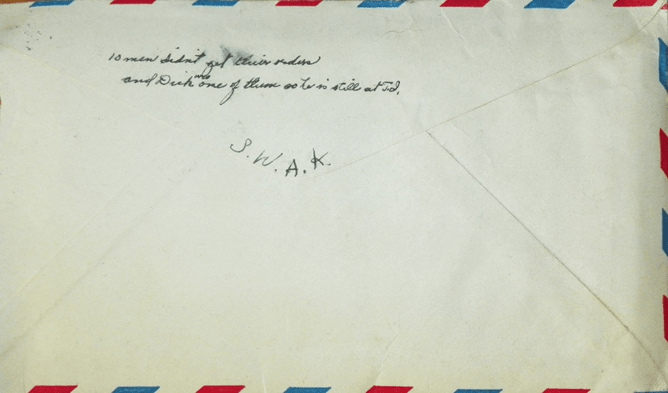 10 men didn't get their orders
and Dick was one of them so he is still at T.I.
S.W.A.K.